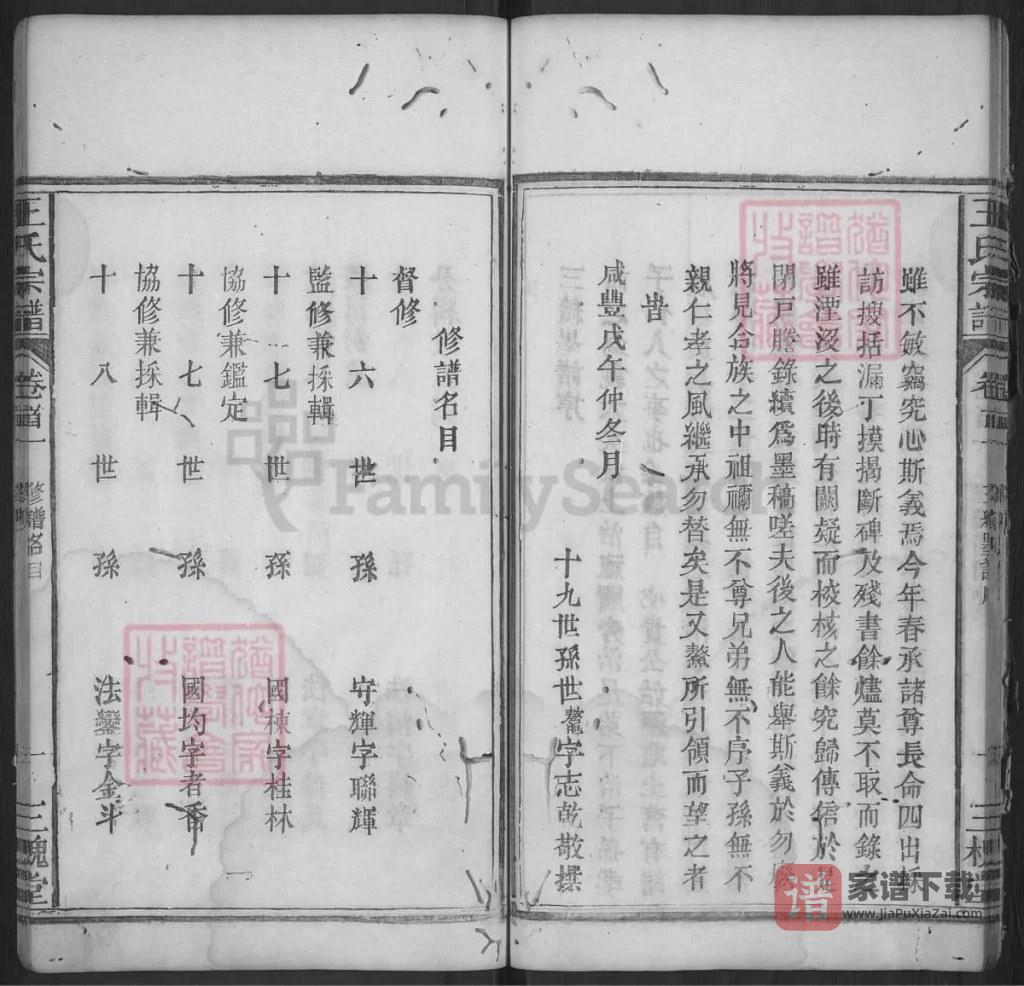 雖不敏竊究心斯義焉今年春承諸尊長命四出採
訪搜括漏丁摸揭斷碑及殘書餘燼莫不取而錄
雖湮沒之後時有闕疑而校核之餘究歸傳信於是
閉戶謄錄續爲墨稿嗟夫後之人能舉斯義於勿廢
將見合族之中祖禰無不尊兄弟無不序子孫無不
親仁孝之風繼承勿替矣是又鰲所引領而望之者
皆
咸豐戊午仲冬月
十九世孫世鰲字志乾敬撰
王氏宗譜
三槐堂
修譜名目
督修
十六世孫 守輝字聯輝
監修兼採輯
十七世孫 國棟字桂林
協修兼鑑定
十七世孫 國均字者香
協修兼採輯
十八世孫 法鑾字金斗
王氏宗譜 卷首 修譜名目 一 三槐堂
FamilySearch
譜
家谱下载
www.jiaPuXiaZai.com